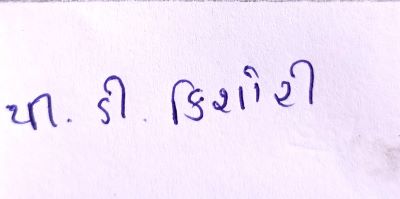 પી. ડી. કિશોરી